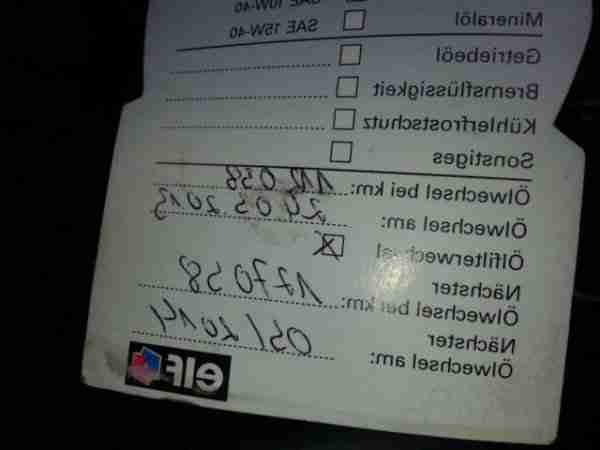 SAE 10W-40
Mineralöl ☐ SAE 15W-40
Getriebeöl ☐
Bremsflüssigkeit ☐
Kühlerfrostschutz ☐
Sonstiges ☐
Ölwechsel bei km: 112.058
Ölwechsel am: 24.05.2013
Ölfilterwechsel ☒
Nächster
Ölwechsel bei km: 127058
Nächster
Ölwechsel am: 05/2014
elf